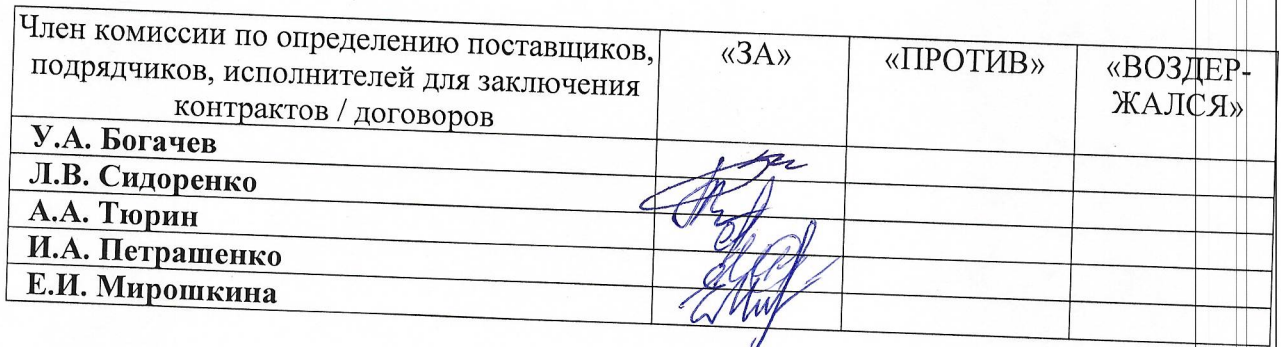 Член комиссии по определению поставщиков,
подрядчиков, исполнителей для заключения
контрактов / договоров
«ЗА»
«ПРОТИВ»
«ВОЗДЕР-
ЖАЛСЯ»
У.А. Богачев
Л.В. Сидоренко
А.А. Тюрин
И.А. Петрашенко
Е.И. Мирошкина